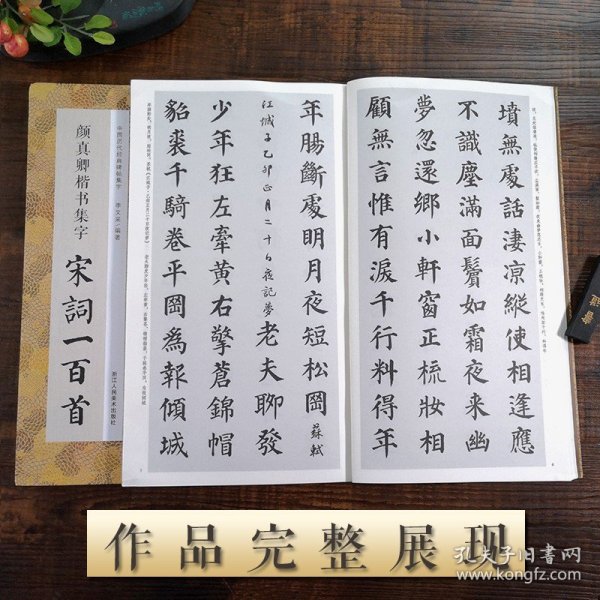 颜真卿楷书集字
宋詞一百首
中国历代经典碑帖集字
李文采 编著
浙江人民美术出版社
墳無處話淒涼縱使相逢應
不識塵滿面鬢如霜夜來幽
夢忽還鄉小軒窗正梳妝相
顧無言惟有淚千行料得年
年腸斷處明月夜短松岡 蘇軾
江城子乙卯正月二十日夜記夢 老夫聊發
少年狂左牽黃右擎蒼錦帽
貂裘千騎卷平岡爲報傾城
作品完整展现
孔夫子旧书网
www.kongfz.com